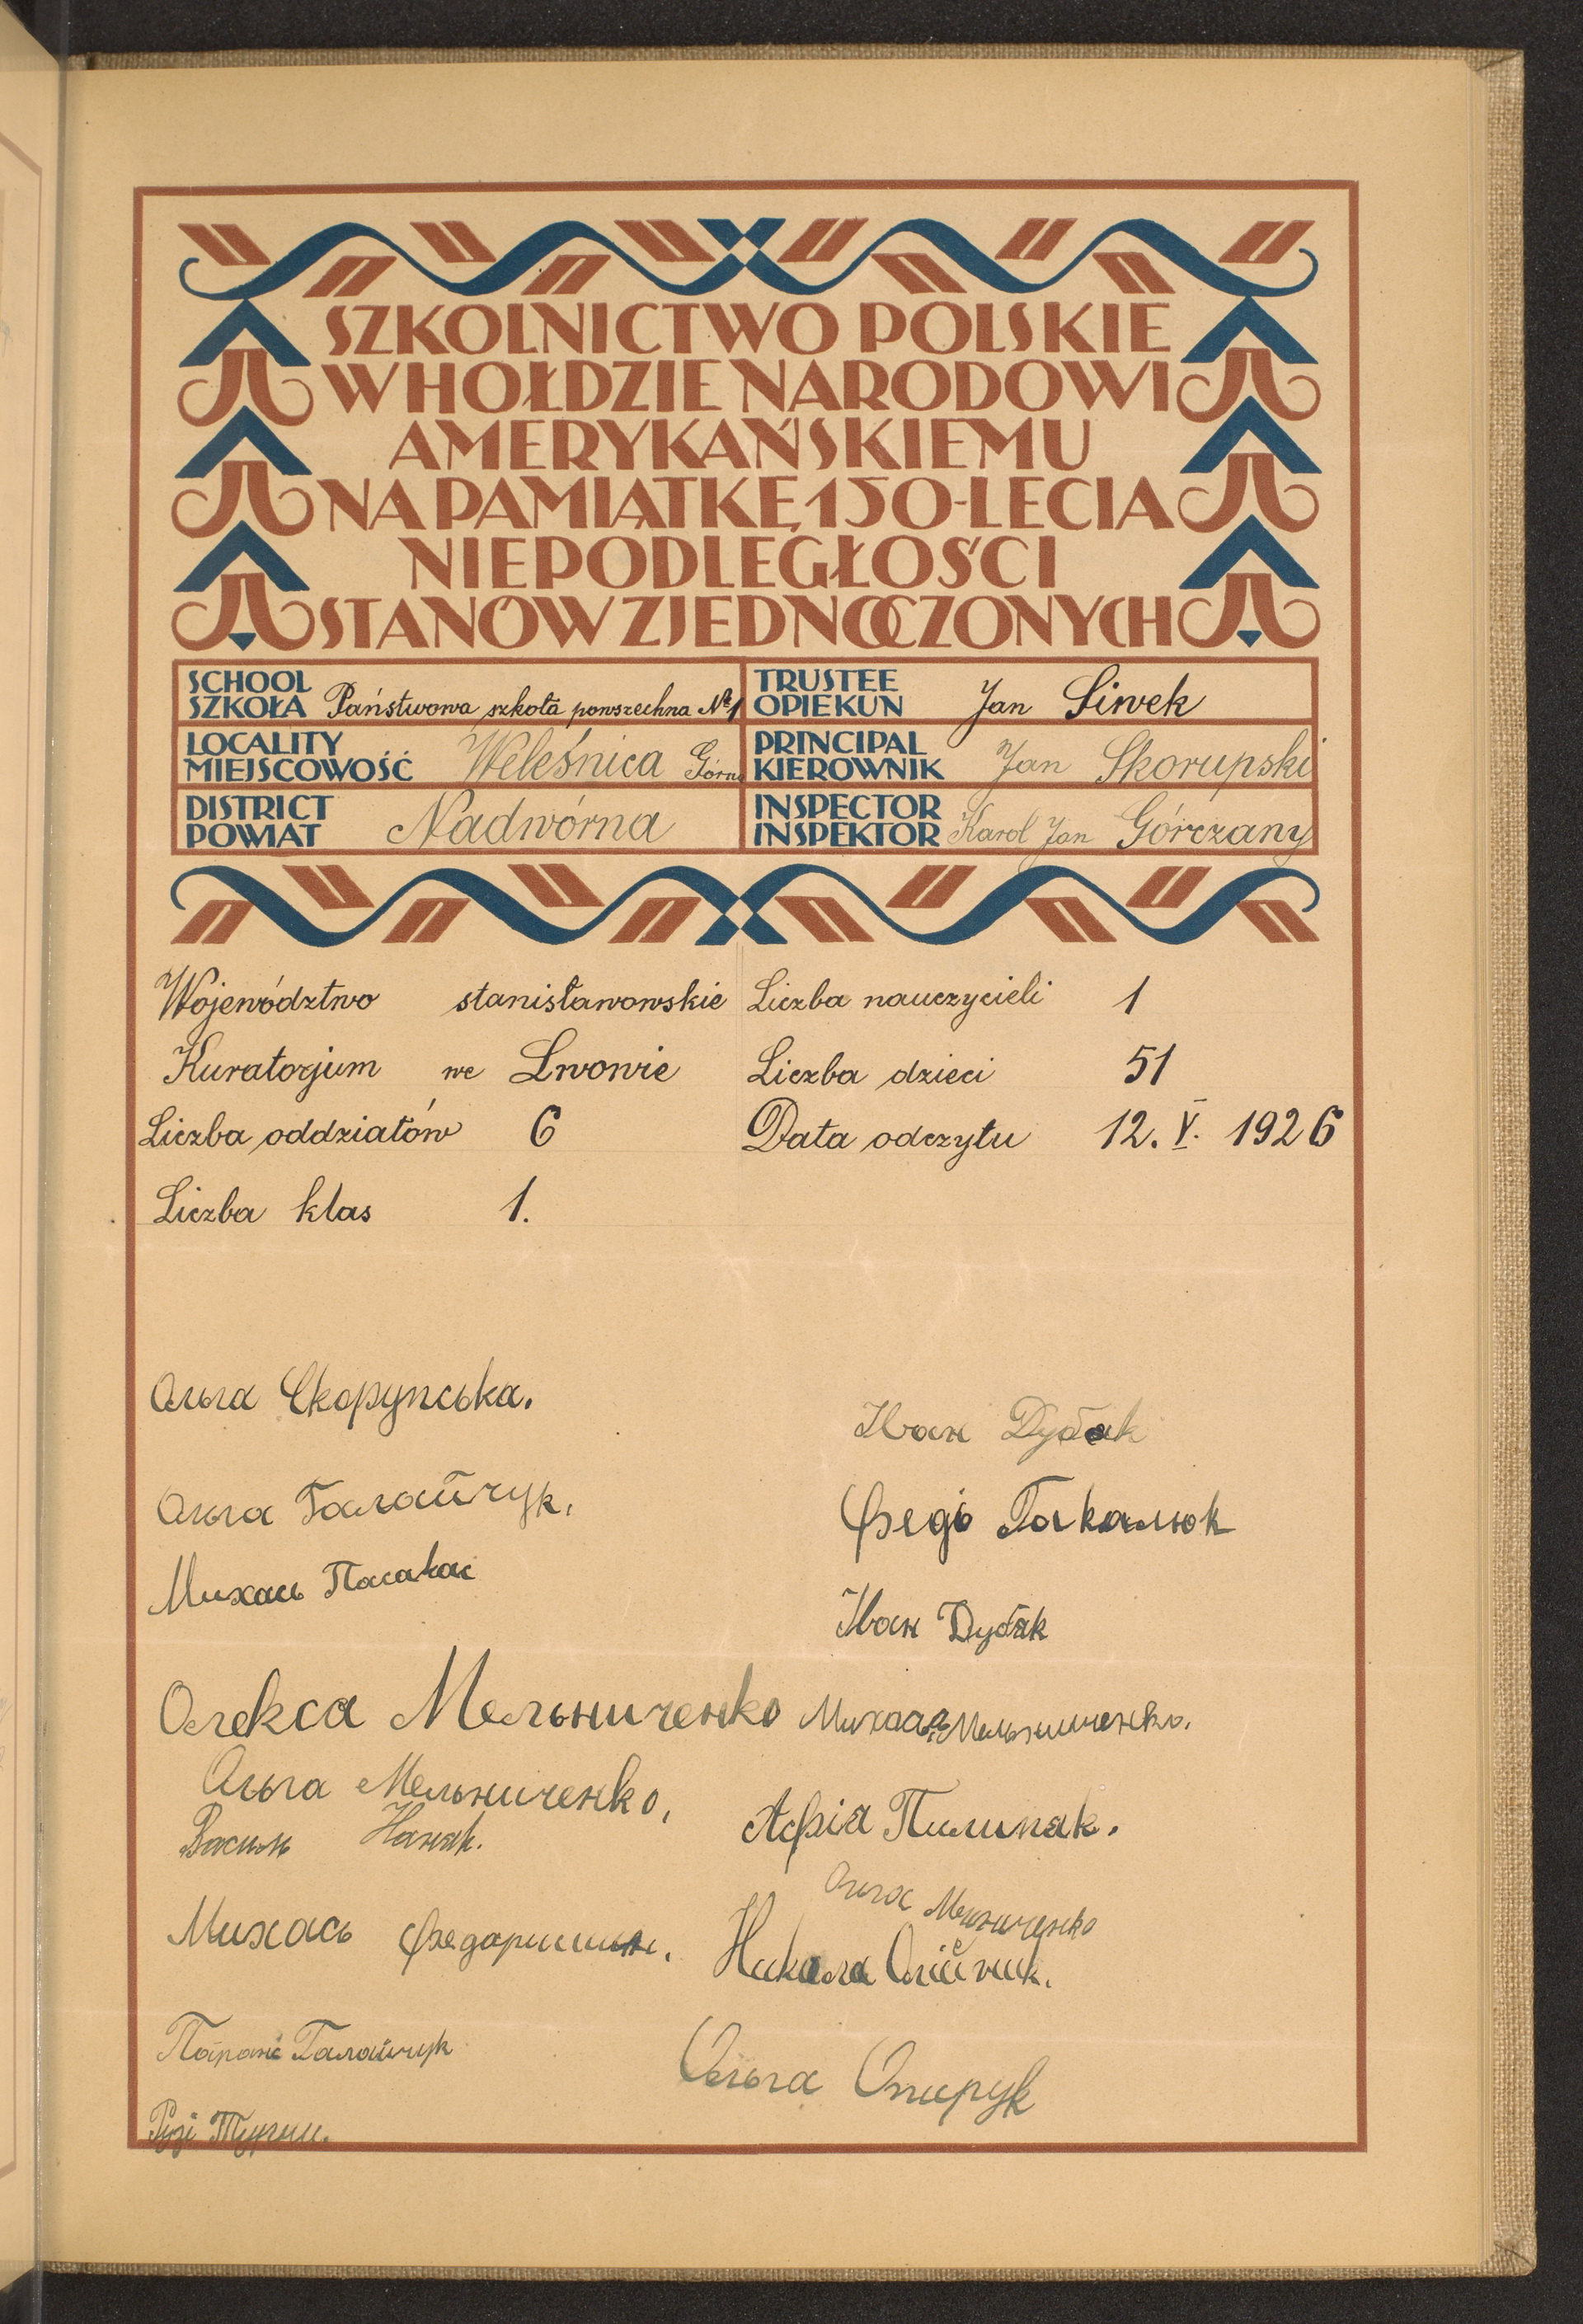 SZKOLNICTWO POLSKIE
W HOŁDZIE NARODOWI
AMERYKAŃSKIEMU
NA PAMIĄTKĘ 150-LECIA
NIEPODLEGŁOŚCI
STANÓW ZJEDNOCZONYCH
SCHOOL
SZKOŁA Państwowa szkoła powszechna № 1
TRUSTEE
OPIEKUN Jan Siwek
LOCALITY
MIEJSCOWOŚĆ Weleśnica Górna
PRINCIPAL
KIEROWNIK Jan Skorupski
DISTRICT
POWIAT Nadwórna
INSPECTOR
INSPEKTOR Karol Jan Górczany
Województwo stanisławowskie Liczba nauczycieli 1
Kuratorjum we Lwowie Liczba dzieci 51
Liczba oddziałów 6 Data odczytu 12. V. 1926
Liczba klas 1.
Ольга Скорупська.
Іван Дубак
Ольга Галайчук.
Федь Гакалюк
Михась
Іван Дубак
Олекса Мельниченко Мельниченко.
Ольга Мельниченко,
Василь Нанак.
Пилипак.
Ольга Мельниченко
Михась
Никола Олійник.
Галайчук
Ольга Опирук